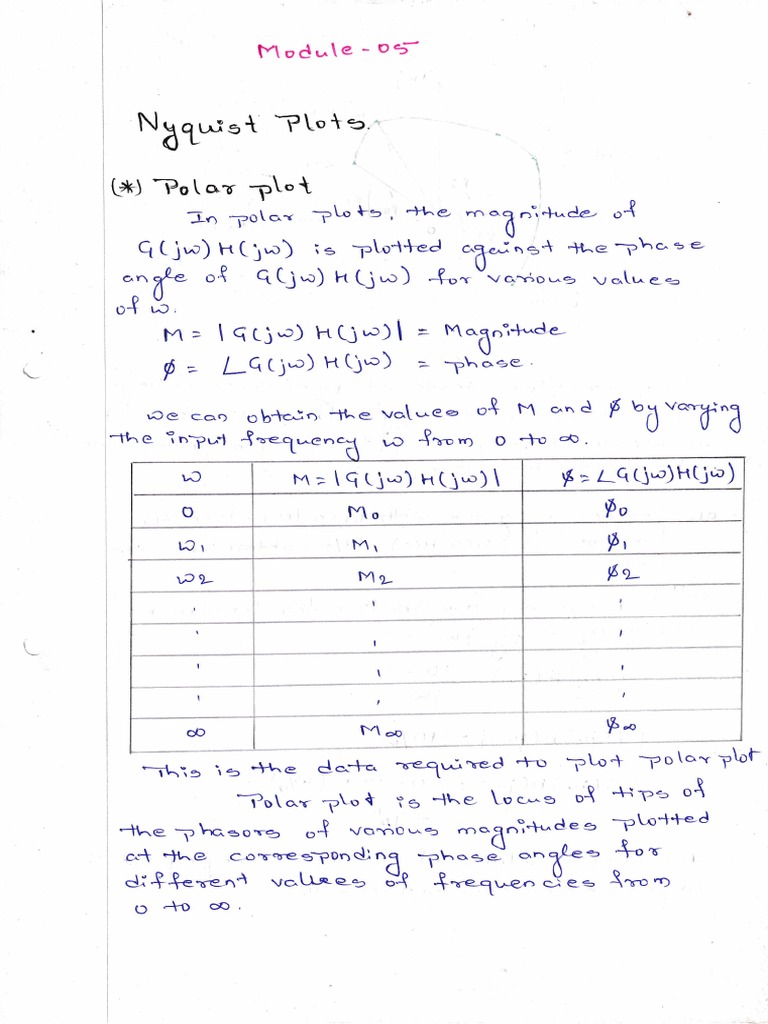 Module-05
Nyquist Plots.
(*) Polar plot
In polar plots, the magnitude of
G(jω)H(jω) is plotted against the phase
angle of G(jω)H(jω) for various values
of ω.
M = |G(jω)H(jω)| = Magnitude
φ = ∠G(jω)H(jω) = phase.
we can obtain the values of M and φ by varying
the input frequency ω from 0 to ∞.
ω M=|G(jω)H(jω)| φ=∠G(jω)H(jω)
0 M0 φ0
ω1 M1 φ1
ω2 M2 φ2
' ' '
' ' '
' ' '
' ' '
∞ M∞ φ∞
This is the data required to plot polar plot
Polar plot is the locus of tips of
the phasors of various magnitudes plotted
at the corresponding phase angles for
different values of frequencies from
0 to ∞.